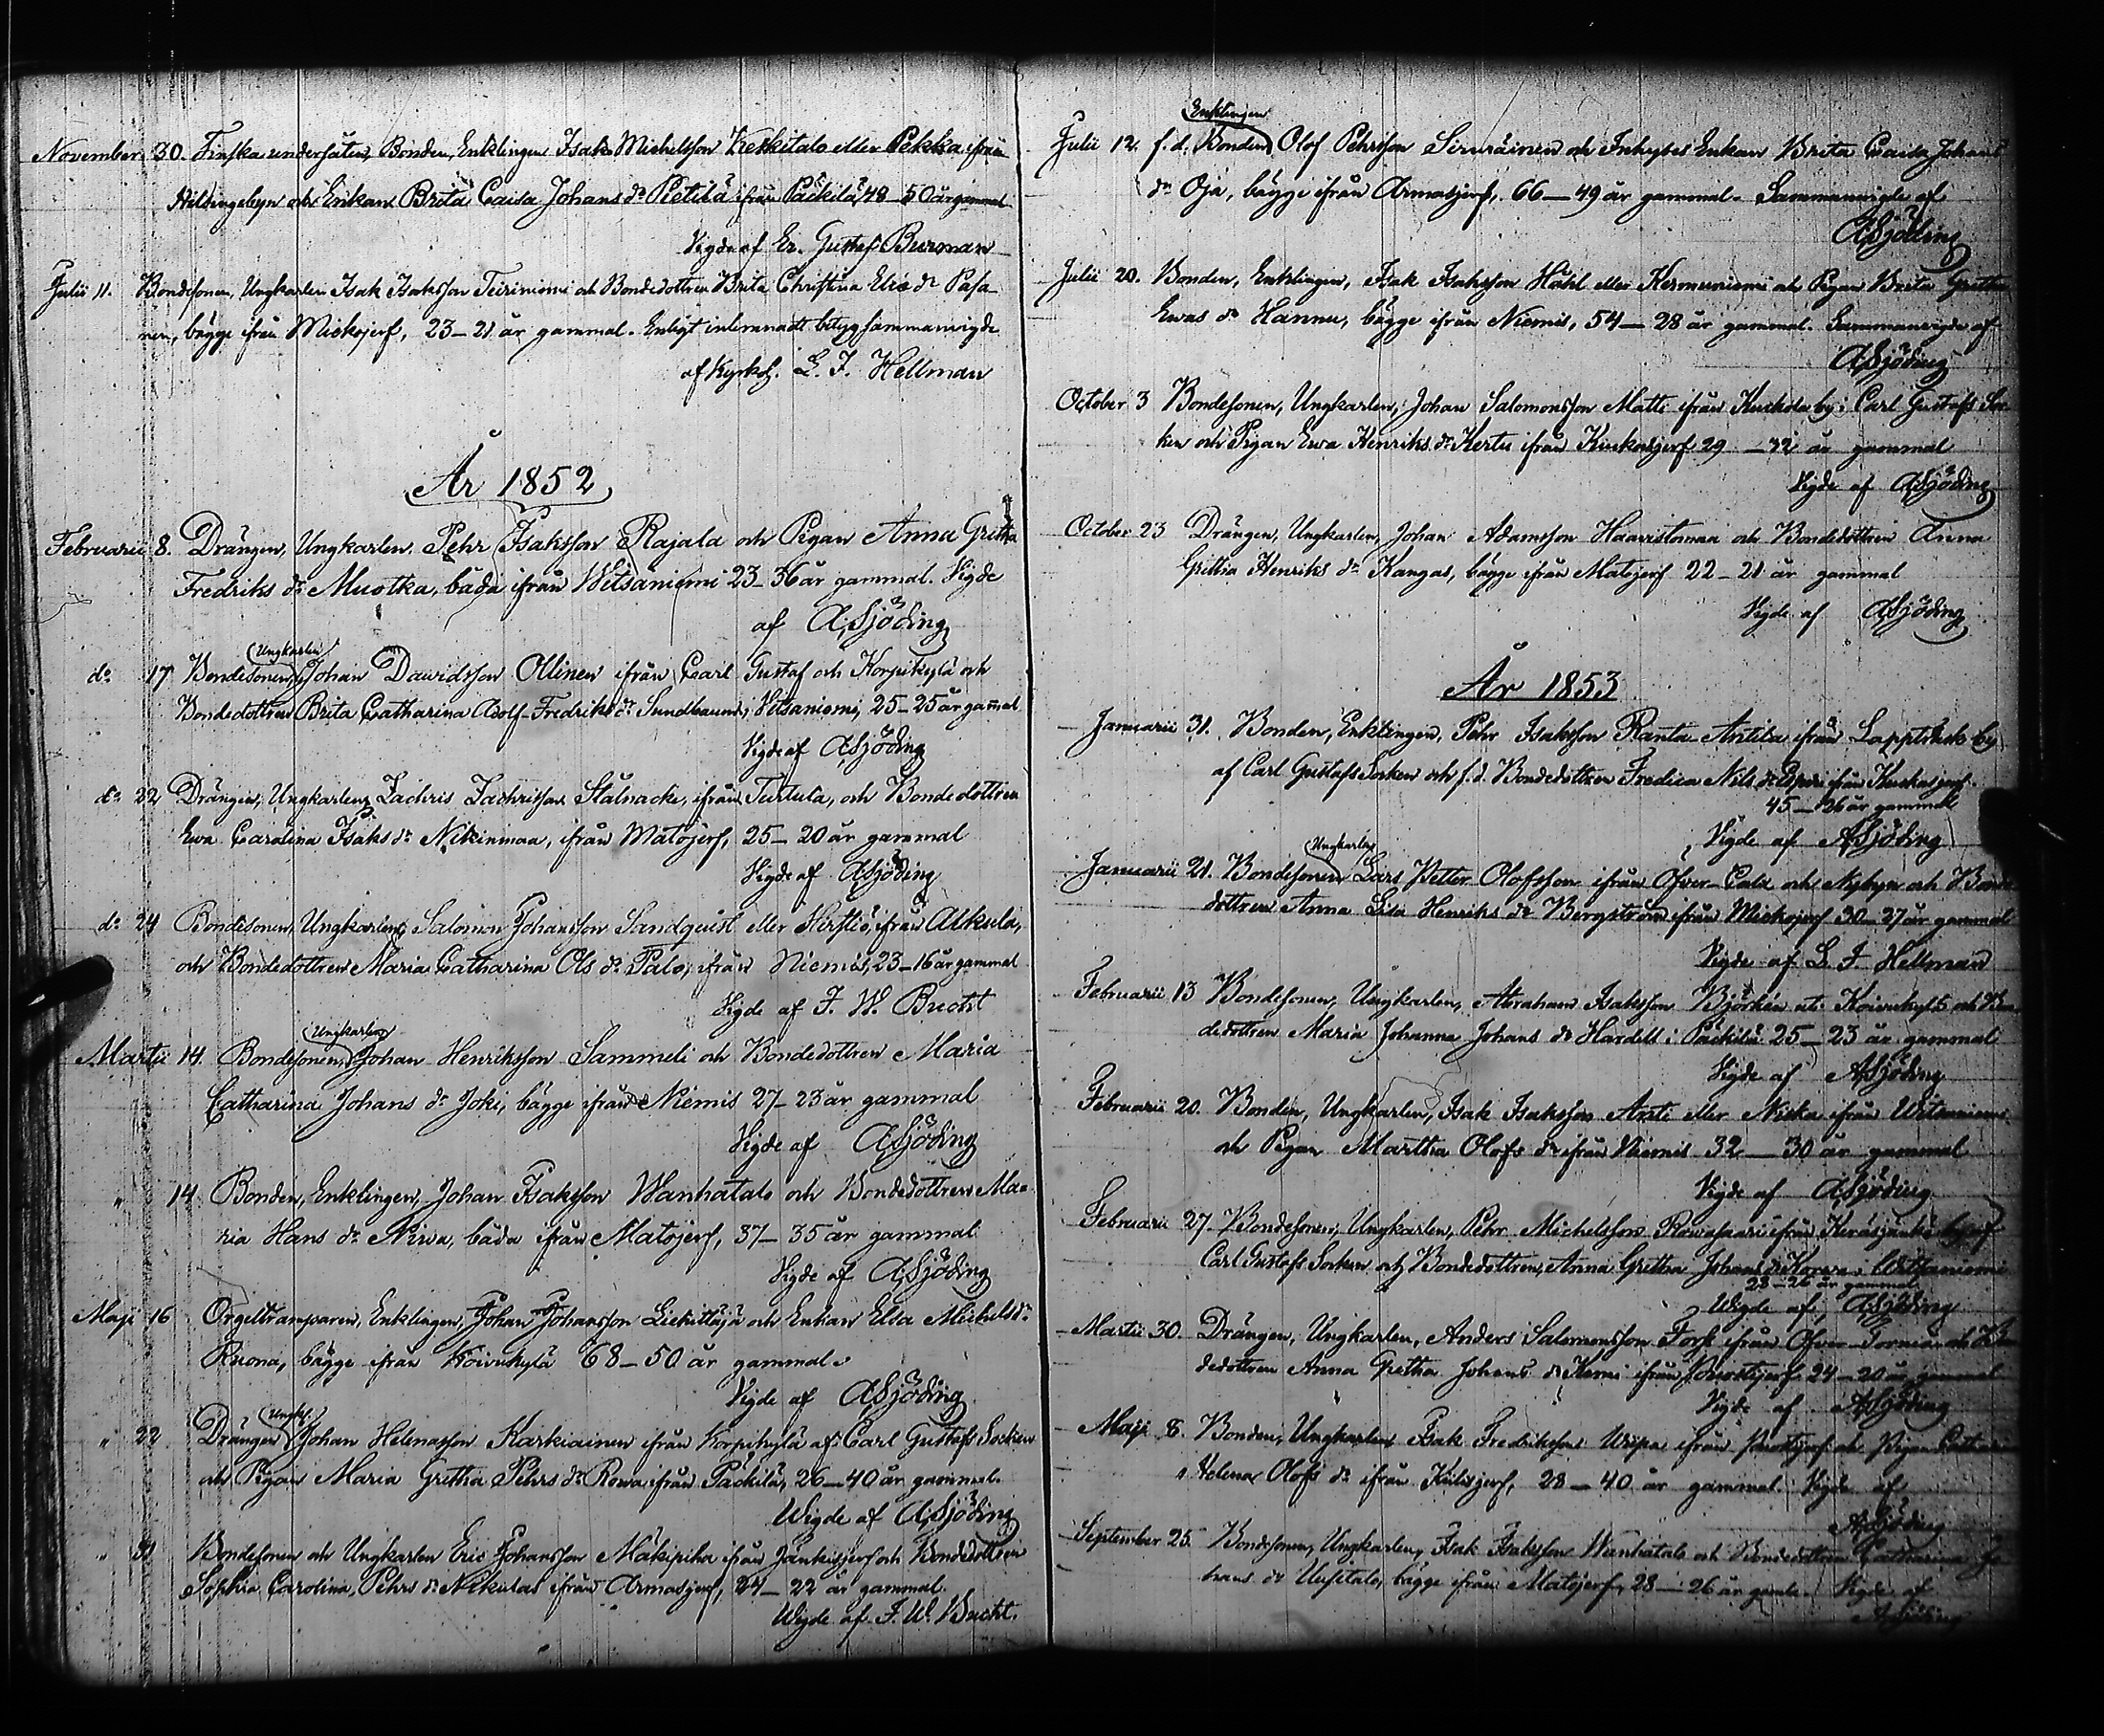 November 30. Finska undersåten, Bonden, Enklingen Isak Michelsson Keskitalo eller Pekka ifrån
Hietingebyn och Enkan Brita Caisa Johans dr Pietilä ifrån Päckilä, 48–50 år gammal
Vigde af Er. Gustaf Burman
Julii 11. Bondesonen, Ungkarlen Isak Isaksson Teiriniemi och Bondedottren Brita Christina Elis dr Pasa-
nen, bägge ifrån Miekojerf, 23–21 år gammal. Enligt inlemnadt betyg sammanvigde
af Kyrkoh. L. J. Hellman
År 1852
Februarii 8. Drängen, Ungkarlen Pehr Isaksson Rajala och Pigan Anna Gretha
Fredriks dr Muotka, båda ifrån Witsaniemi 23–36 år gammal. Vigde
af ASjöding
do 17 Bondesonen, Ungkarlen Johan Davidsson Ollinen ifrån Carl Gustaf och Korpikylä och
Bondedottren Brita Catharina Adolf-Fredriks dr Sundbaum, i Vitsaniemi, 25–25 år gamal
Vigde af ASjöding
do 22 Drängen, Ungkarlen Zachris Zachrisson Stålnacke, ifrån Turtula, och Bondedottren
Ewa Carolina Isaks dr Nikinmaa, ifrån Matojerf, 25–20 år gammal
Vigde af ASjöding
do 24 Bondesonen, Ungkarlen Salomon Johansson Sandquist eller Hirstiö, ifrån Alkula,
och Bondedottren Maria Catharina Ols dr Palo, ifrån Niemis, 23–16 år gammal
Vigde af F. W. Bucht
Martii 14. Bondesonen, Ungkarlen Johan Henriksson Sammeli och Bondedottren Maria
Catharina Johans dr Joki, bägge ifrån Niemis 27–23 år gammal
Vigde af ASjöding
" 14 Bonden, Enklingen, Johan Isaksson Wanhatalo och Bondedottren Ma-
ria Hans dr Nirva, båda ifrån Matojerf, 37–35 år gammal
Vigde af ASjöding
Maji 16 Orgeltramparen, Enklingen, Johan Johansson Liekittäjä och Enkan Elsa Michels dr
Ruona, bägge ifrån Koivukylä 68–50 år gammal.
Vigde af ASjöding
" 22 Drängen Ungk. Johan Helenasson Karkiainen ifrån Korpikylä af Carl Gustafs Socken
och Pigan Maria Gretha Pehrs dr Rowa ifrån Päckilä, 26–40 år gammal.
Wigde af ASjöding
" 31 Bondesonen och Ungkarlen Eric Johansson Mäkipiha ifrån Jänkisjerf och Bondedottren
Sophia Carolina Pehrs dr Nikulas ifrån Armasjerf, 24–22 år gammal.
Wigde af F. W. Bucht.
Julii 12. f. d. Bonden, Enklingen Olof Pehrsson och Inhyses Enkan Brita Caisa Johans
dr Oja, bägge ifrån Armasjerf, 66–49 år gammal. Sammanvigde af
ASjöding
Julii 20. Bonden, Enklingen, Isak Isaksson Håhl eller Kermuniemi och Pigan Brita Gretha
Ewas dr Hannu, bägge ifrån Niemis, 54–28 år gammal. Sammanvigde af
ASjöding
October 3 Bondesonen, Ungkarlen, Johan Salomonsson Matti ifrån Kuckola by i Carl Gustafs Soc-
ken och Pigan Ewa Henriks dr Kertu ifrån Kuckasjerf 29–32 år gammal
Vigde af ASjöding
October 23 Drängen, Ungkarlen, Johan Adamsson Haavistomaa och Bondedottren Anna
Grethia Henriks dr Kangas, bägge ifrån Matojerf 22–21 år gammal
Vigde af ASjöding
År 1853
Januarii 31. Bonden, Enklingen, Pehr Isaksson Ranta-Antila ifrån Lappträsk by
af Carl Gustafs Socken och f. d. Bondedottren Fredica Nils dr ifrån Kuckasjerf.
45–26 år gammal
Vigde af ASjöding
Januarii 21. Bondesonen Ungkarlen Lars Petter Olofsson ifrån Öfver-Calix och Nybyn och Bonde-
dottren Anna Lisa Henriks dr Bergström ifrån Miekojerf 30–27 år gammal
Vigde af L. J. Hellman
Februarii 13 Bondesonen, Ungkarlen, Abraham Isaksson Björkén uti Koivukylä och Bon-
dedottren Maria Johanna Johans dr Hardell i Päckilä 25–23 år gammal
Vigde af ASjöding
Februarii 20. Bonden, Ungkarlen, Isak Isaksson Antti eller Niska ifrån Witsaniemi
och Pigan Martha Olofs dr ifrån Niemis 32–30 år gammal
Vigde af ASjöding
Februarii 27. Bondesonen, Ungkarlen, Pehr Michelsson Rowasaari ifrån Keräsjänkä by af
Carl Gustafs Socken och Bondedottren, Anna Gretha Johans dr Korva i Witsaniemi
28–26 år gammal
Wigde af, ASjöding
Martii 30. Drängen, Ungkarlen, Anders Salomonsson Fors ifrån Öfver-Torneå och Bon-
dedottren Anna Gretha Johans dr Kemi ifrån 24–20 år gammal
Vigde af ASjöding
Maji 8. Bonden, Ungkarlen Isak Fredriksson ifrån och Pigan
Helena Olofs dr ifrån Kuivasjerf, 28–40 år gammal. Vigde af
ASjöding
September 25. Bondesonen, Ungkarlen, Isak Isaksson Wanhatalo och Bondedottren Catharina Jo-
hans dr Uusitalo, bägge ifrån Matojerf, 28–26 år gamle. Vigde af
ASjöding